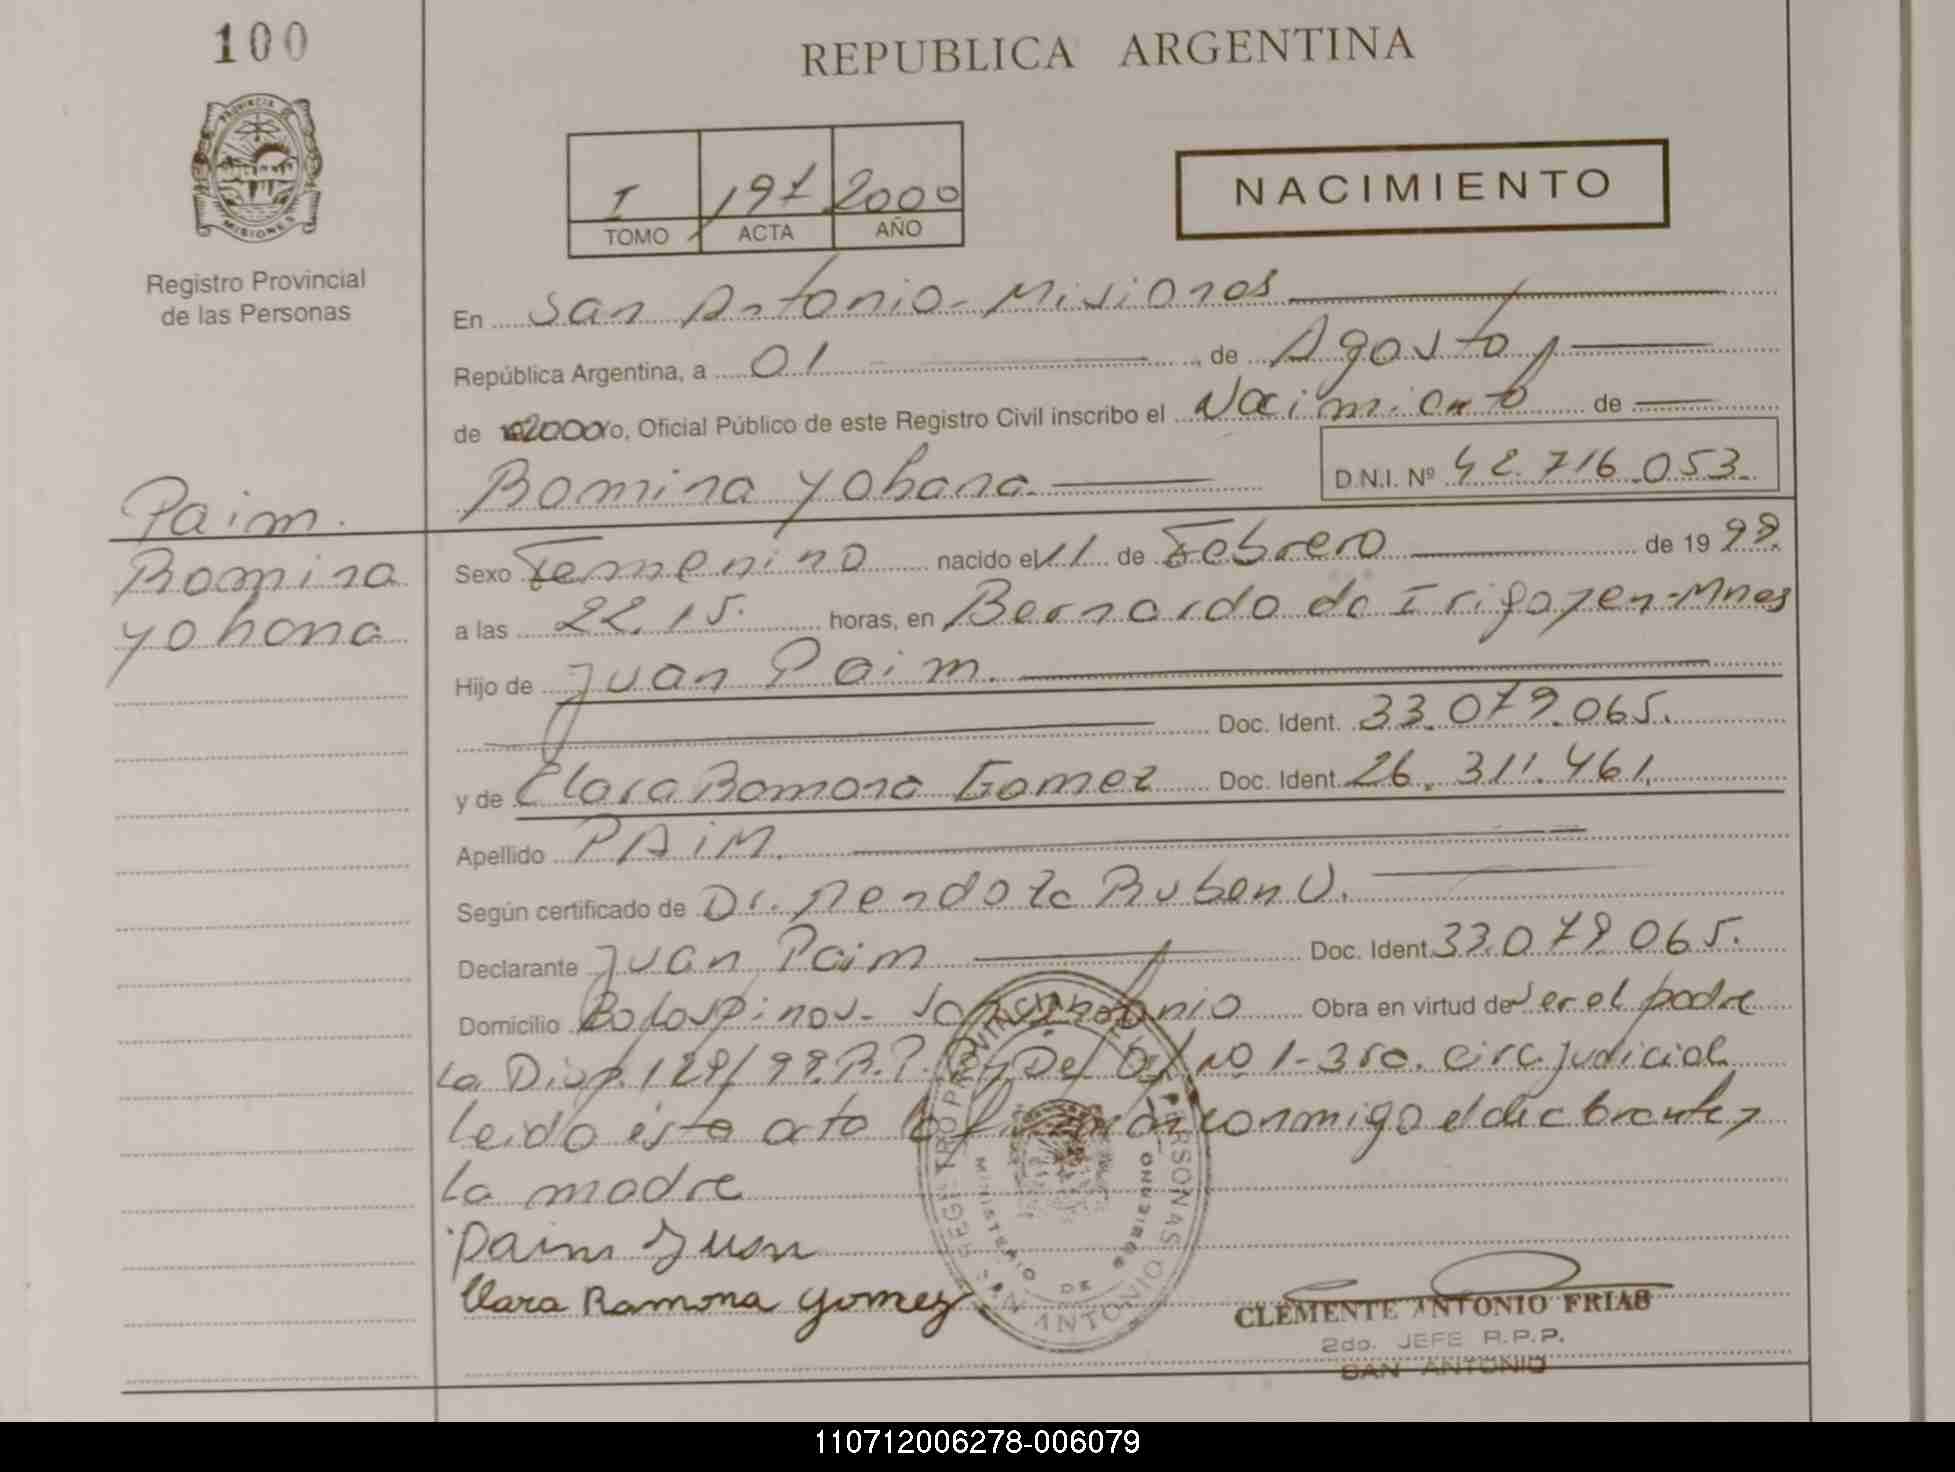 100
REPUBLICA ARGENTINA
PROVINCIA DE
MISIONES
Registro Provincial
de las Personas
I 197 2000
TOMO ACTA AÑO
NACIMIENTO
En San Antonio - Misiones
República Argentina, a 01, de Agosto
de 2000 yo, Oficial Público de este Registro Civil inscribo el Nacimiento de
Romina Yohana D.N.I. Nº 42.716.053.
Paim.
Romina
Yohana
Sexo Femenino nacido el 11 de Febrero de 19 99.
a las 22.15. horas, en Bernardo de Irigoyen - Mnes
Hijo de Juan Paim.
Doc. Ident. 33.079.065.
y de Clara Romona Gomez Doc. Ident. 26.311.461.
Apellido PAiM.
Según certificado de Dr. Mendoza Ruben U.
Declarante Juan Paim Doc. Ident. 33.079.065.
Domicilio San Antonio Obra en virtud de ser el padre
La Disp. 129/99.R.P. Nº 1-3ra. circ. judicial
leido ésta acta la firman conmigo el declarante y
la madre
Paim Juan
Clara Ramona Gomez
REGISTRO PROVINCIAL DE LAS PERSONAS
MINISTERIO DE GOBIERNO
SAN ANTONIO
CLEMENTE ANTONIO FRIAS
2do. JEFE R.P.P.
SAN ANTONIO
110712006278-006079